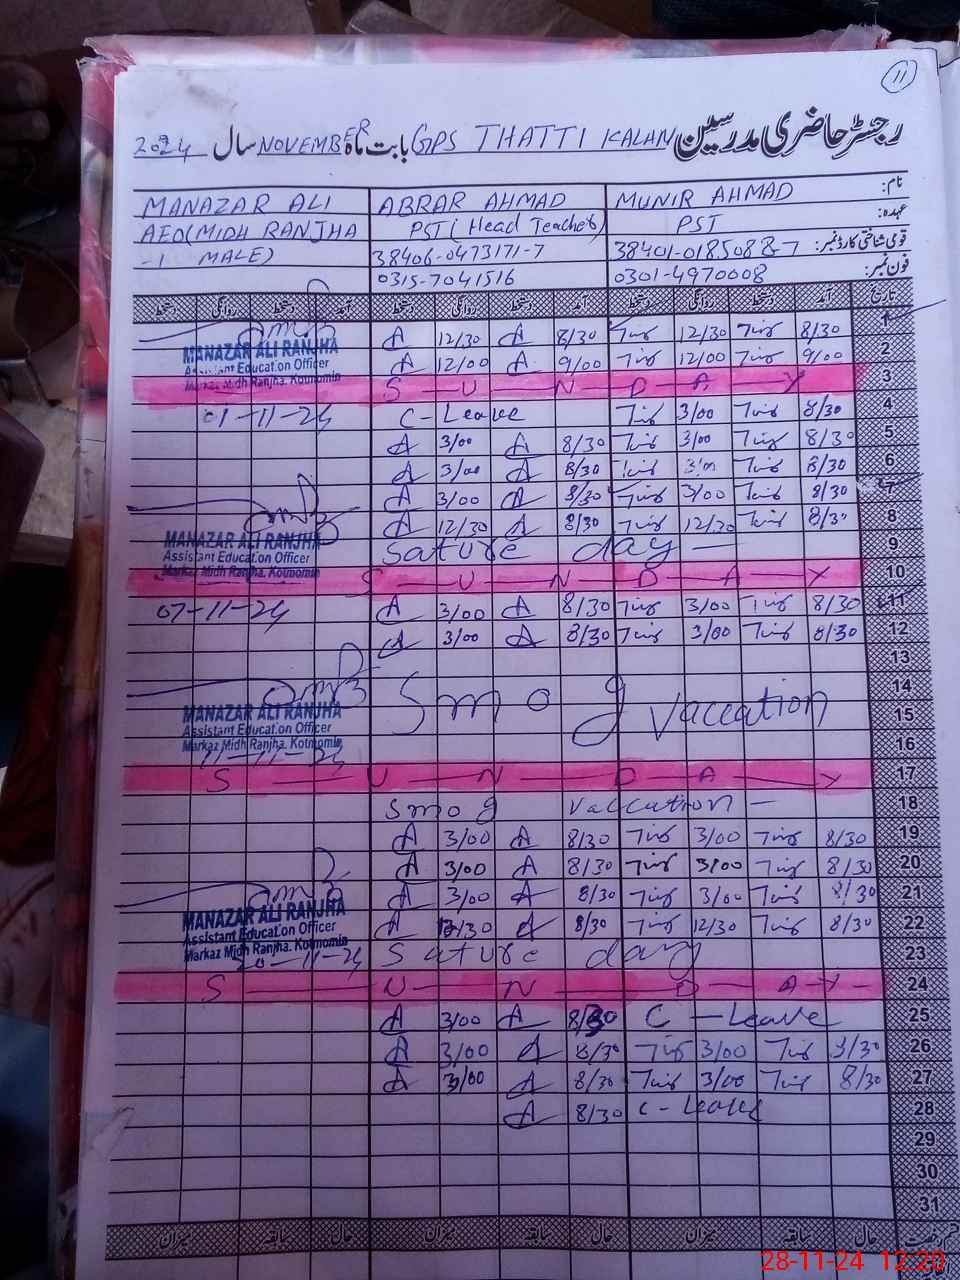 11
رجسٹر حاضری مدرسین GPS THATTI KALAN بابت ماہ NOVEMBER سال 2024
نام: MUNIR AHMAD ABRAR AHMAD MANAZAR ALI
عہدہ: PST PST (Head Teacher) AEO (MIDH RANJHA
قومی شناختی کارڈ نمبر: 38406-0473171-7 -1 MALE)
فون نمبر: 0301-4970008 0315-7041516
تاریخ آمد دستخط روانگی دستخط آمد دستخط روانگی دستخط آمد دستخط روانگی دستخط
1 8/30 12/30 8/30 A 12/30 A
MANAZAR ALI RANJHA
Assistant Education Officer
Markaz Midh Ranjha. Kotmomin
2 9/00 12/00 9/00 A 12/00 A
3 S U N D A Y
4 8/30 3/00 C-Leave 01-11-24
5 8/30 3/00 8/30 A 3/00 A
6 8/30 3/00 8/30 A 3/00 A
7 8/30 3/00 8/30 A 3/00 A
8 8/30 12/30 8/30 A 12/30 A
MANAZAR ALI RANJHA
Assistant Education Officer
Markaz Midh Ranjha. Kotmomin
9 Sature day
10 S U N D A Y
11 8/30 3/00 8/30 A 3/00 A 07-11-24
12 8/30 3/00 8/30 A 3/00 A
13
14 Smog
15 vaccation
MANAZAR ALI RANJHA
Assistant Education Officer
Markaz Midh Ranjha. Kotmomin
16 11-11-24
17 S U N D A Y
18 Smog vaccation
19 8/30 3/00 8/30 A 3/00 A
20 8/30 3/00 8/30 A 3/00 A
21 8/30 3/00 8/30 A 3/00 A
22 8/30 12/30 8/30 A 12/30 A
MANAZAR ALI RANJHA
Assistant Education Officer
Markaz Midh Ranjha. Kotmomin
23 Sature day 20-11-24
24 S U N D A Y
25 C-Leave 8/30 A 3/00 A
26 8/30 3/00 8/30 A 3/00 A
27 8/30 3/00 8/30 A 3/00 A
28 C-Leave 8/30 A
29
30
31
حال سابقہ میزان حال سابقہ میزان حال سابقہ میزان
28-11-24 12:20